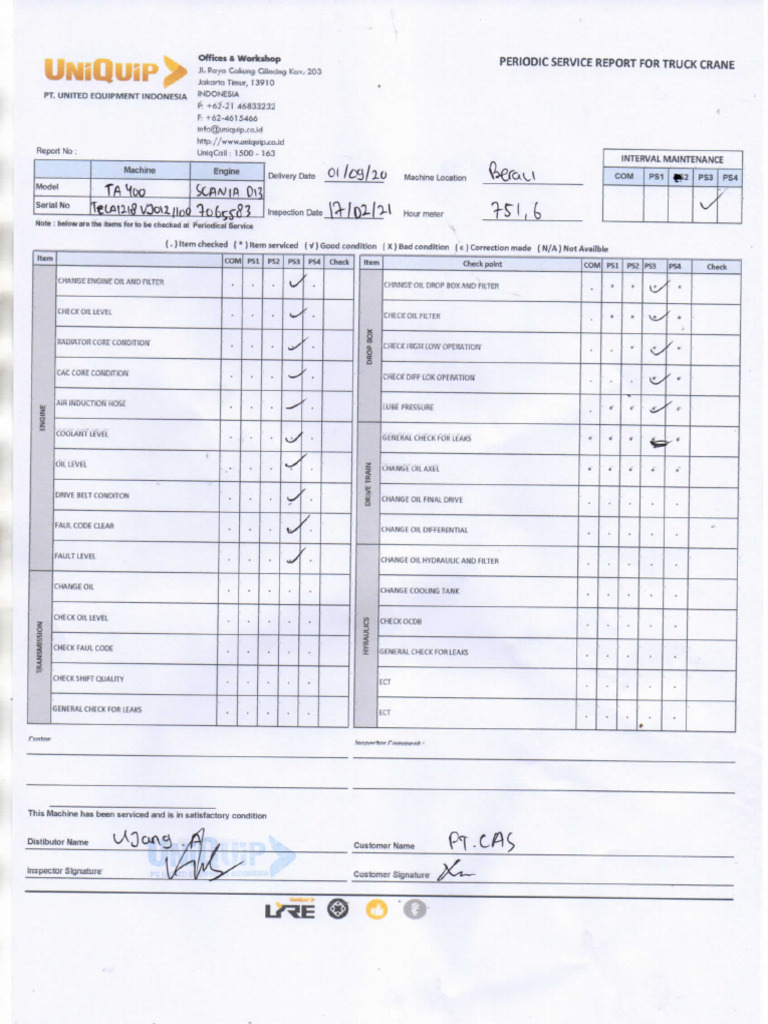 UNIQUIP
PT. UNITED EQUIPMENT INDONESIA
Offices & Workshop
Jl. Raya Cakung Cilincing Kav. 203
Jakarta Timur, 13910
INDONESIA
P: +62-21 46833232
F: +62-4615466
info@uniquip.co.id
http://www.uniquip.co.id
UniqCall : 1500 - 163
PERIODIC SERVICE REPORT FOR TRUCK CRANE
Report No :
Machine Engine
Model TA 400 SCANIA D13
Serial No 7065583
Delivery Date 01/09/20
Inspection Date 17/02/21
Machine Location Berau
Hour meter 751,6
INTERVAL MAINTENANCE
COM PS1 PS3 PS4
✓
Note : below are the items for to be checked at Periodical Service
( . ) Item checked ( * ) Item serviced ( √ ) Good condition ( X ) Bad condition ( c ) Correction made ( N/A ) Not Availble
Item COM PS1 PS2 PS3 PS4 Check
ENGINE
CHANGE ENGINE OIL AND FILTER . . . ✓ .
CHECK OIL LEVEL . . . ✓ .
RADIATOR CORE CONDITION . . . ✓ .
CAC CORE CONDITION . . . ✓ .
AIR INDUCTION HOSE . . . ✓ .
COOLANT LEVEL . . . ✓ .
OIL LEVEL . . . ✓ .
DRIVE BELT CONDITON . . . ✓ .
FAUL CODE CLEAR . . . ✓ .
FAULT LEVEL . . . ✓ .
TRANSMISSION
CHANGE OIL . . . . .
CHECK OIL LEVEL . . . . .
CHECK FAUL CODE . . . . .
CHECK SHIFT QUALITY . . . . .
GENERAL CHECK FOR LEAKS . . . . .
Item Check point COM PS1 PS2 PS3 PS4 Check
DROP BOX
CHANGE OIL DROP BOX AND FILTER . * * ✓ *
CHECK OIL FILTER . * * ✓ *
CHECK HIGH LOW OPERATION . . * ✓ *
CHECK DIFF LOK OPERATION . . . ✓ *
LUBE PRESSURE . * * ✓ *
DRIVE TRAIN
GENERAL CHECK FOR LEAKS * * * ✓ *
CHANGE OIL AXEL * * * * *
CHANGE OIL FINAL DRIVE . . . . .
CHANGE OIL DIFFERENTIAL . . . . .
HYRAULICS
CHANGE OIL HYDRAULIC AND FILTER . . . . .
CHANGE COOLING TANK . . . . .
CHECK OCDB . . . . .
GENERAL CHECK FOR LEAKS . . . . .
ECT . . . . .
ECT . . . . .
Inspector Comment :
This Machine has been serviced and is in satisfactory condition
Distibutor Name Ujang.A
Customer Name PT.CAS
Inspector Signature
Customer Signature
UNIQUIP
PT. UNITED EQUIPMENT INDONESIA